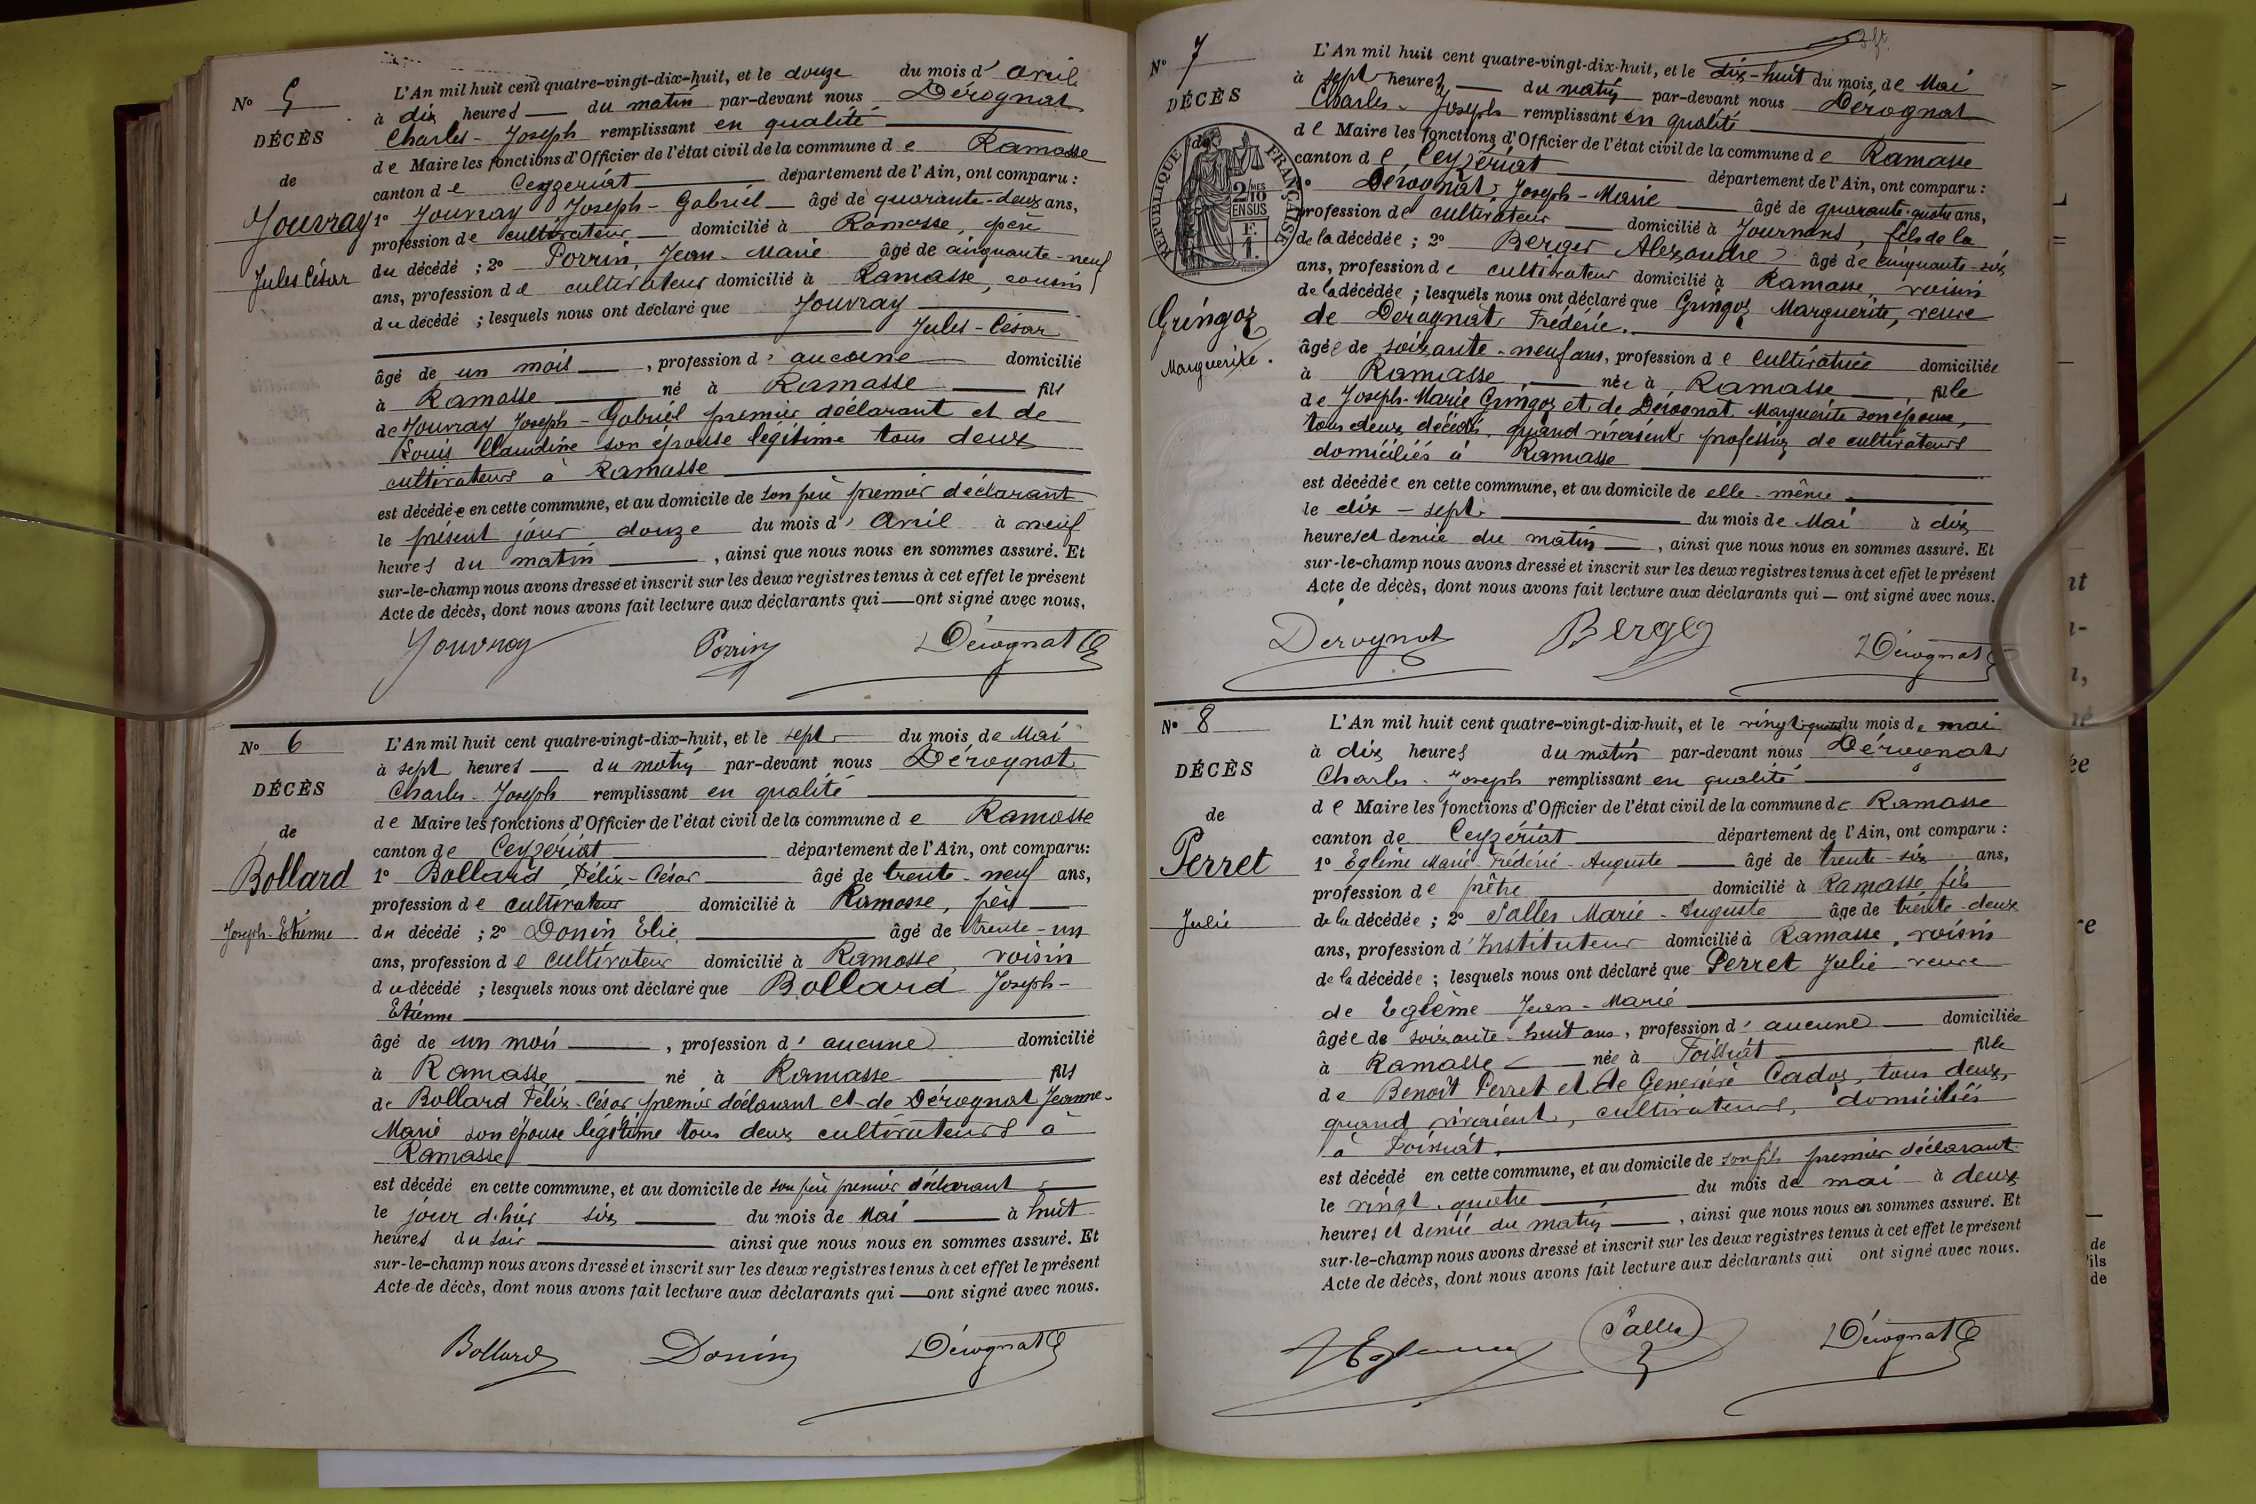 N° 5
DÉCÈS
de
Jouvray
Jules César
L'An mil huit cent quatre-vingt-dix-huit, et le douze du mois d' avril
à dix heures du matin par-devant nous Dérognat
Charles-Joseph remplissant en qualité
de Maire les fonctions d'Officier de l'état civil de la commune de Ramasse
canton de Ceyzériat département de l'Ain, ont comparu :
1° Jouvray Joseph-Gabriel âgé de quarante-deux ans,
profession de cultivateur domicilié à Ramasse, père
du décédé ; 2° Porrin, Jean-Marie âgé de cinquante-neuf
ans, profession de cultivateur domicilié à Ramasse, cousin
du décédé ; lesquels nous ont déclaré que Jouvray
Jules-César
âgé de un mois, profession d' aucune domicilié
à Ramasse né à Ramasse fils
de Jouvray Joseph-Gabriel premier déclarant et de
Louis Claudine son épouse légitime tous deux
cultivateurs à Ramasse
est décédé en cette commune, et au domicile de son père premier déclarant
le présent jour douze du mois d' Avril à neuf
heures du matin, ainsi que nous nous en sommes assuré. Et
sur-le-champ nous avons dressé et inscrit sur les deux registres tenus à cet effet le présent
Acte de décès, dont nous avons fait lecture aux déclarants qui ont signé avec nous.
Jouvray Porrin Dérognat
N° 6
DÉCÈS
de
Bollard
Joseph-Etienne
L'An mil huit cent quatre-vingt-dix-huit, et le sept du mois de Mai
à sept heures du matin par-devant nous Dérognat
Charles-Joseph remplissant en qualité
de Maire les fonctions d'Officier de l'état civil de la commune de Ramasse
canton de Ceyzériat département de l'Ain, ont comparu:
1° Bollard Félix-César âgé de trente-neuf ans,
profession de cultivateur domicilié à Ramasse, père
du décédé ; 2° Donin Elie, âgé de trente-un
ans, profession de cultivateur domicilié à Ramasse, voisin
du décédé ; lesquels nous ont déclaré que Bollard Joseph-
Etienne
âgé de un mois, profession d' aucune domicilié
à Ramasse né à Ramasse fils
de Bollard Félix-César premier déclarant et de Dérognat Jeanne-
Marie son épouse légitime tous deux cultivateurs à
Ramasse
est décédé en cette commune, et au domicile de son père premier déclarant
le jour d'hier six du mois de Mai à huit
heures du soir ainsi que nous nous en sommes assuré. Et
sur-le-champ nous avons dressé et inscrit sur les deux registres tenus à cet effet le présent
Acte de décès, dont nous avons fait lecture aux déclarants qui ont signé avec nous.
Bollard Donin Dérognat
N° 7
DÉCÈS
de
RÉPUBLIQUE FRANÇAISE
2/10MES
EN SUS
F.
1.
Gringoz
Marguerite.
L'An mil huit cent quatre-vingt-dix-huit, et le dix-huit du mois de Mai
à sept heures du matin par-devant nous Dérognat
Charles-Joseph remplissant en qualité
de Maire les fonctions d'Officier de l'état civil de la commune de Ramasse
canton de Ceyzériat département de l'Ain, ont comparu :
1° Dérognat, Joseph-Marie âgé de quarante-quatre ans,
profession de cultivateur domicilié à Journans, fils de la
de la décédée ; 2° Berger Alexandre âgé de cinquante-six
ans, profession de cultivateur domicilié à Ramasse, voisin
de la décédée ; lesquels nous ont déclaré que Gringoz Marguerite, veuve
de Dérognat Frédéric.
âgée de soixante-neuf ans, profession de cultivatrice domiciliée
à Ramasse, née à Ramasse fille
de Joseph-Marie Gringoz et de Dérognat Marguerite son épouse,
tous deux décédés, quand vivaient profession de cultivateurs
domiciliés à Ramasse
est décédée en cette commune, et au domicile de elle-même
le dix-sept du mois de Mai à dix
heures et demie du matin, ainsi que nous nous en sommes assuré. Et
sur-le-champ nous avons dressé et inscrit sur les deux registres tenus à cet effet le présent
Acte de décès, dont nous avons fait lecture aux déclarants qui ont signé avec nous.
Derognat Berger Dérognat
N° 8
DÉCÈS
de
Perret
Julie
L'An mil huit cent quatre-vingt-dix-huit, et le vingt-quatre du mois de mai
à dix heures du matin par-devant nous Dérognat
Charles-Joseph remplissant en qualité
de Maire les fonctions d'Officier de l'état civil de la commune de Ramasse
canton de Ceyzériat département de l'Ain, ont comparu :
1° Eglème Marie-Frédéric-Auguste âgé de trente-six ans,
profession de prêtre domicilié à Ramasse, fils
de la décédée ; 2° Salles Marie-Auguste âgé de trente-deux
ans, profession d'Instituteur domicilié à Ramasse, voisin
de la décédée ; lesquels nous ont déclaré que Perret Julie veuve
de Eglème Jean-Marie
âgée de soixante-huit ans, profession d' aucune domiciliée
à Ramasse née à Foissiat fille
de Benoît Perret et de Geneviève Cadoz, tous deux,
quand vivaient, cultivateurs, domiciliés
à Foissiat.
est décédé en cette commune, et au domicile de son fils premier déclarant
le vingt-quatre du mois de mai à deux
heures et demie du matin, ainsi que nous nous en sommes assuré. Et
sur-le-champ nous avons dressé et inscrit sur les deux registres tenus à cet effet le présent
Acte de décès, dont nous avons fait lecture aux déclarants qui ont signé avec nous.
Salles Dérognat